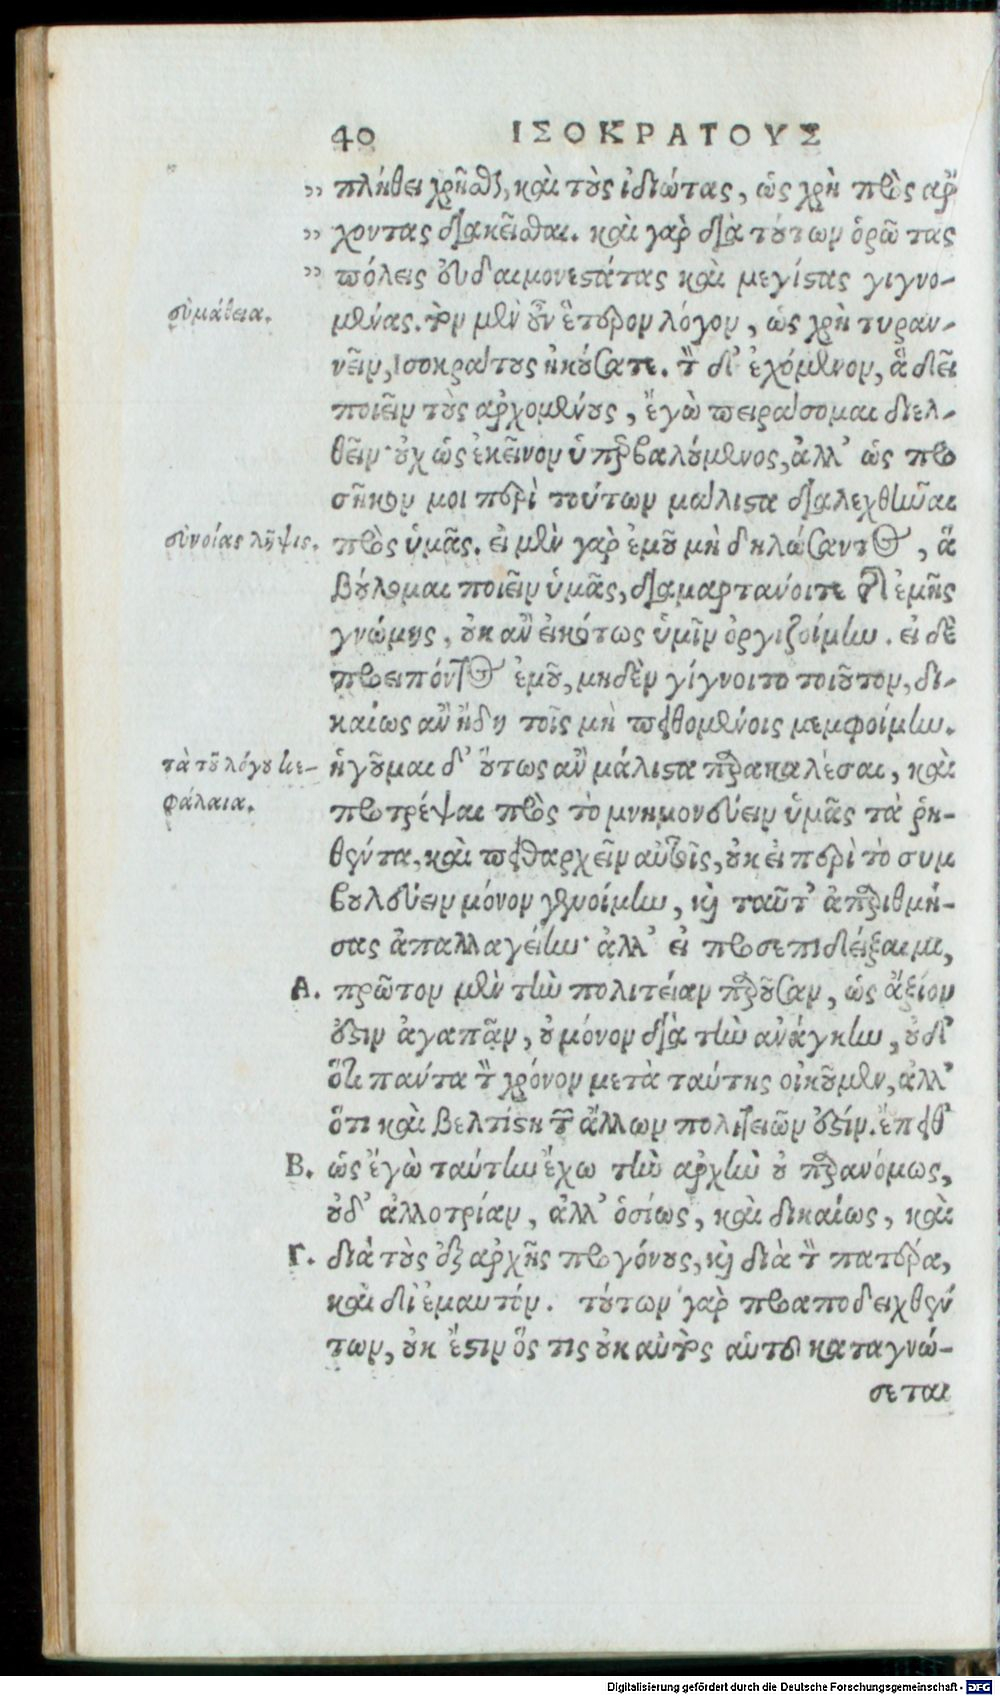 40 ΙΣΟΚΡΑΤΟΥΣ
,, πλήθει χρῆσθαι, καὶ τοὺς ἰδιώτας, ὡς χρὴ πρὸς ἄρ
,, χοντας διακεῖσθαι. καὶ γὰρ διὰ τούτων ὁρῶ τὰς
,, πόλεις εὐδαιμονεστάτας καὶ μεγίστας γιγνο-
εὐμάθεια.
μένας. τὸν μὲν οὖν ἕτερον λόγον, ὡς χρὴ τυραν-
νεῖν, Ισοκράτους ἠκούσατε. τὸν δ' ἐχόμενον, ἃ δεῖ
ποιεῖν τοὺς ἀρχομένους, ἐγὼ πειράσομαι διελ-
θεῖν· οὐχ ὡς ἐκεῖνον ὑπερβαλούμενος, ἀλλ' ὡς προ
σῆκον μοι περὶ τούτων μάλιστα διαλεχθῆναι
εὐνοίας λῆψις.
πρὸς ὑμᾶς. εἰ μὲν γὰρ ἐμοῦ μὴ δηλώσαντος, ἃ
βούλομαι ποιεῖν ὑμᾶς, διαμαρτάνοιτε τῆς ἐμῆς
γνώμης, οὐκ ἂν εἰκότως ὑμῖν ὀργιζοίμην. εἰ δὲ
προειπόντος ἐμοῦ, μηδὲν γίγνοιτο τοιοῦτον, δι-
καίως ἂν ἤδη τοῖς μὴ πειθομένοις μεμφοίμην.
τὰ τοῦ λόγου κε-
φάλαια.
ἡγοῦμαι δ' οὕτως ἂν μάλιστα παρακαλέσαι, καὶ
προτρέψαι πρὸς τὸ μνημονεύειν ὑμᾶς τὰ ῥη-
θέντα, καὶ πειθαρχεῖν αὐτοῖς, οὐκ εἰ περὶ τὸ συμ
βουλεύειν μόνον γενοίμην, καὶ ταῦτ' ἀπαριθμή-
σας ἀπαλλαγείην· ἀλλ' εἰ προσεπιδείξαιμι,
Α. πρῶτον μὲν τὴν πολιτείαν παροῦσαν, ὡς ἄξιόν
ἐστιν ἀγαπᾷν, οὐ μόνον διὰ τὴν ἀνάγκην, οὐδ'
ὅτι πάντα τὸν χρόνον μετὰ ταύτης οἰκοῦμεν, ἀλλ'
ὅτι καὶ βελτίστη τῶν ἄλλων πολιτειῶν ἐστίν. ἔπειθ'
Β. ὡς ἐγὼ ταύτην ἔχω τὴν ἀρχὴν οὐ παρανόμως,
οὐδ' ἀλλοτρίαν, ἀλλ' ὁσίως, καὶ δικαίως, καὶ
Γ. διὰ τοὺς ἐξ ἀρχῆς προγόνους, καὶ διὰ τὸν πατέρα,
καὶ δι' ἐμαυτόν. τούτων γὰρ προαποδειχθέν
των, οὐκ ἔστιν ὅς τις οὐκ αὐτὸς αὑτοῦ καταγνώ-
σεται
Digitalisierung gefördert durch die Deutsche Forschungsgemeinschaft - DFG